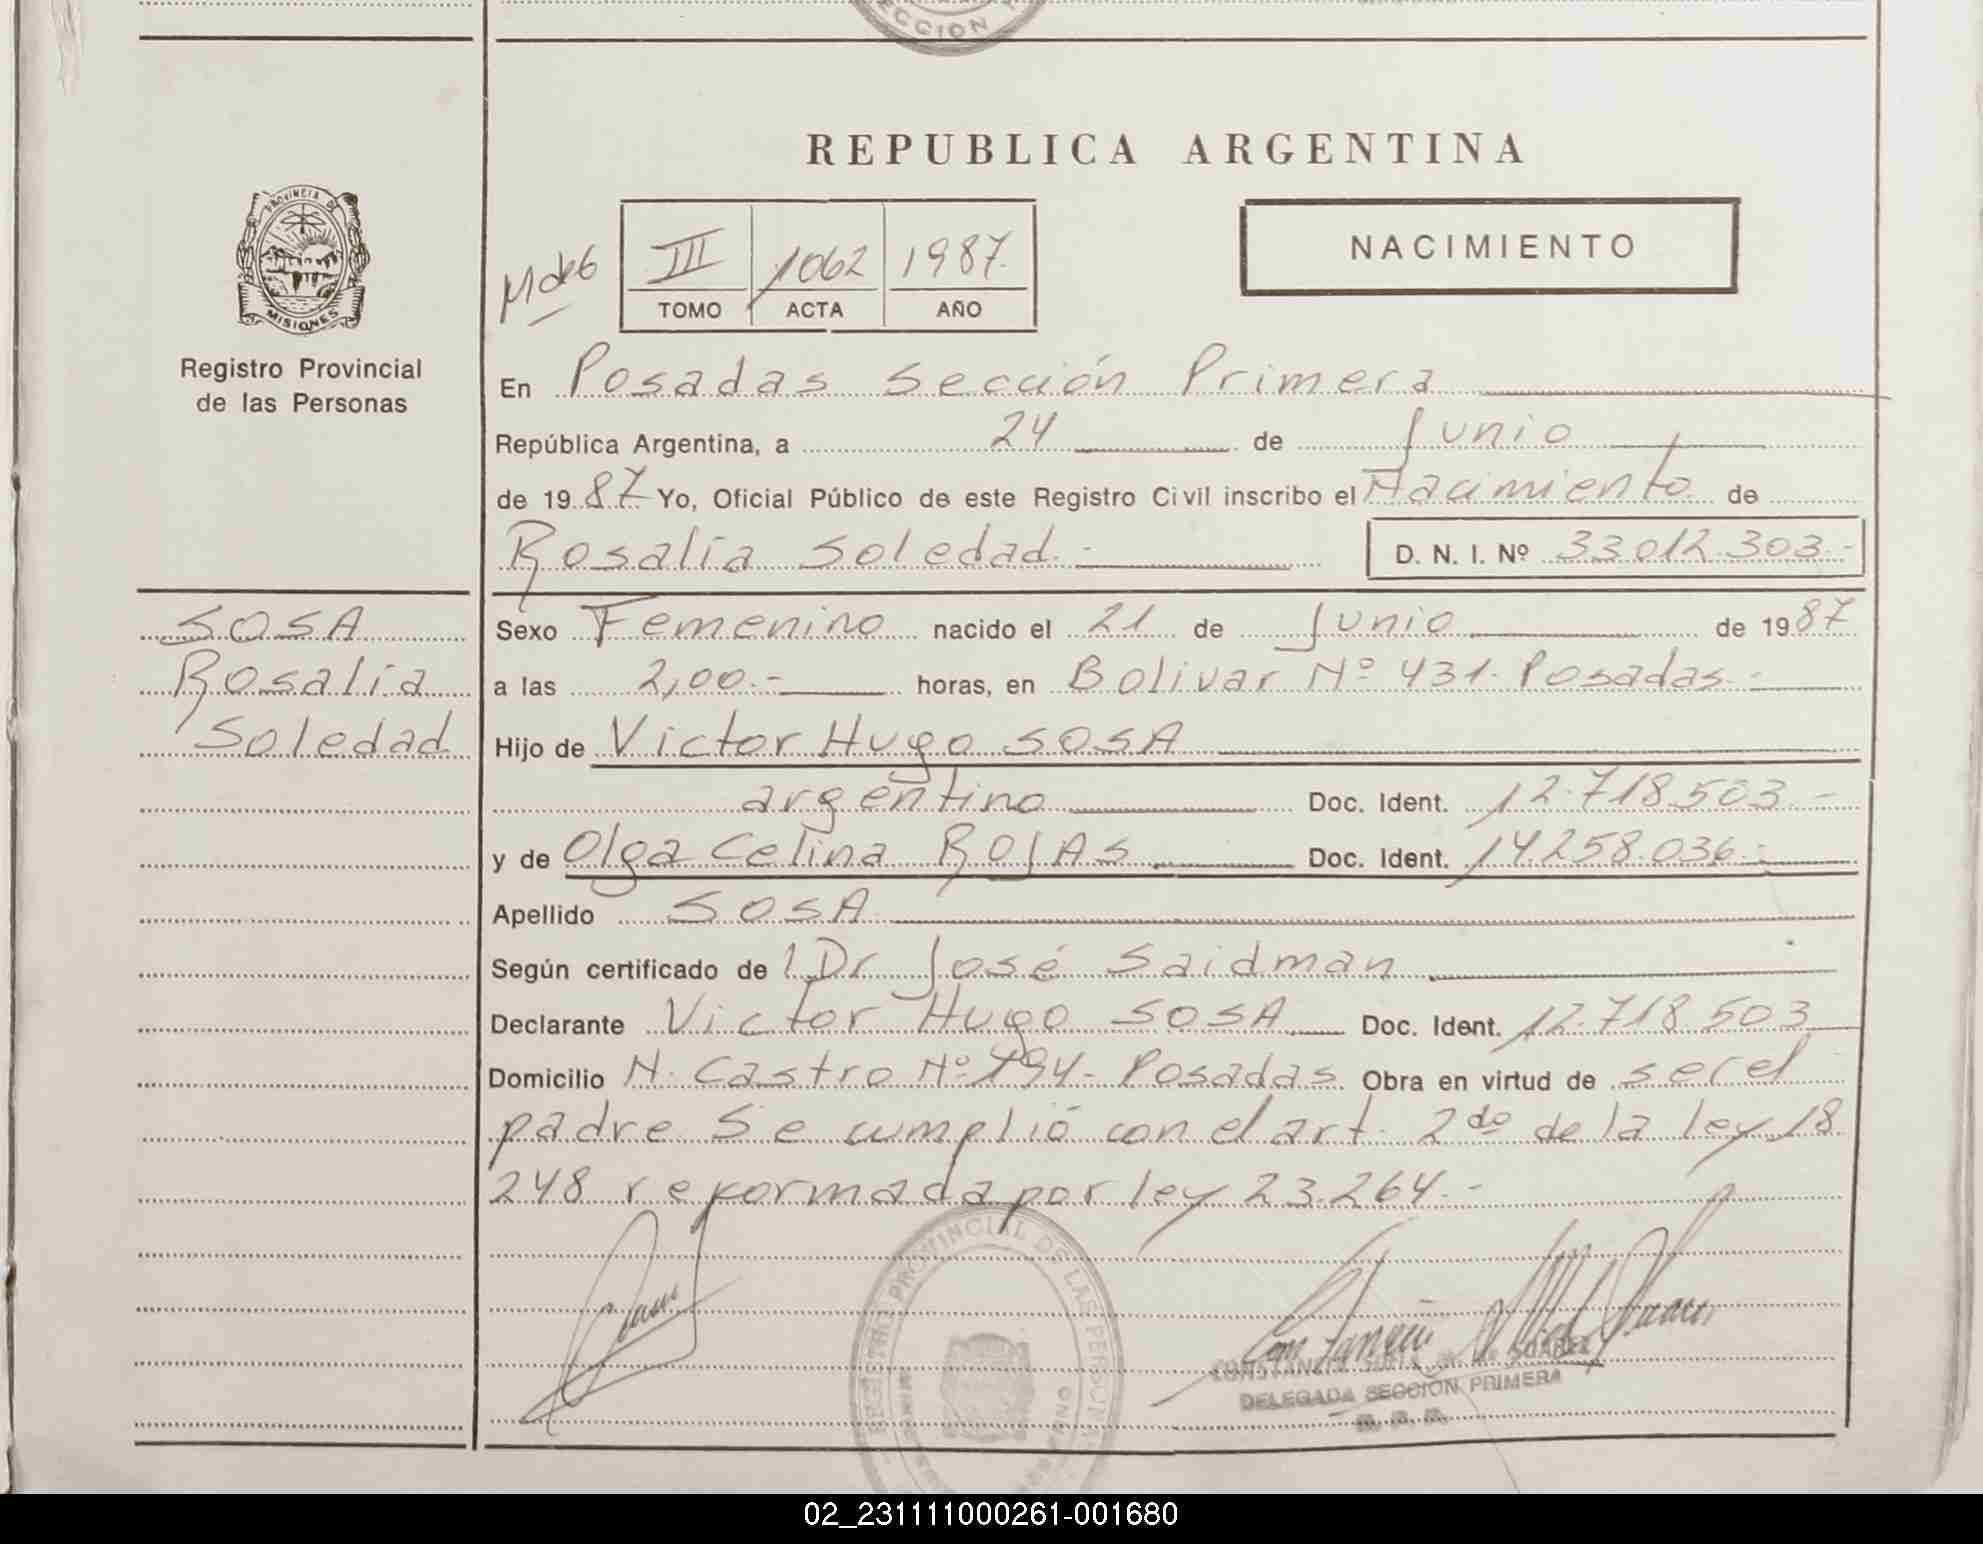 CCION
REPUBLICA ARGENTINA
PROVINCIA DE
MISIONES
Registro Provincial
de las Personas
M de 6
III 1062 1987.
TOMO ACTA AÑO
NACIMIENTO
En Posadas Sección Primera
República Argentina, a 24 de Junio
de 1987 Yo, Oficial Público de este Registro Civil inscribo el Nacimiento de
Rosalía Soledad.- D. N. I. Nº 33.012.303.-
SOSA
Rosalía
Soledad
Sexo Femenino nacido el 21 de Junio de 1987
a las 2,00.- horas, en Bolivar Nº 431. Posadas.-
Hijo de Victor Hugo SOSA
argentino Doc. Ident. 12.718.503.-
y de Olga Celina ROJAS Doc. Ident. 14.258.036.-
Apellido SOSA
Según certificado de Dr José Saidman
Declarante Victor Hugo SOSA Doc. Ident. 12.718.503
Domicilio N. Castro Nº 194- Posadas Obra en virtud de ser el
padre Se cumplió con el art. 2do de la ley 18
248 reformada por ley 23.264.-
REGISTRO PROVINCIAL DE LAS PERSONAS
CONSTANCIA SUAREZ
DELEGADA SECCION PRIMERA
02_231111000261-001680